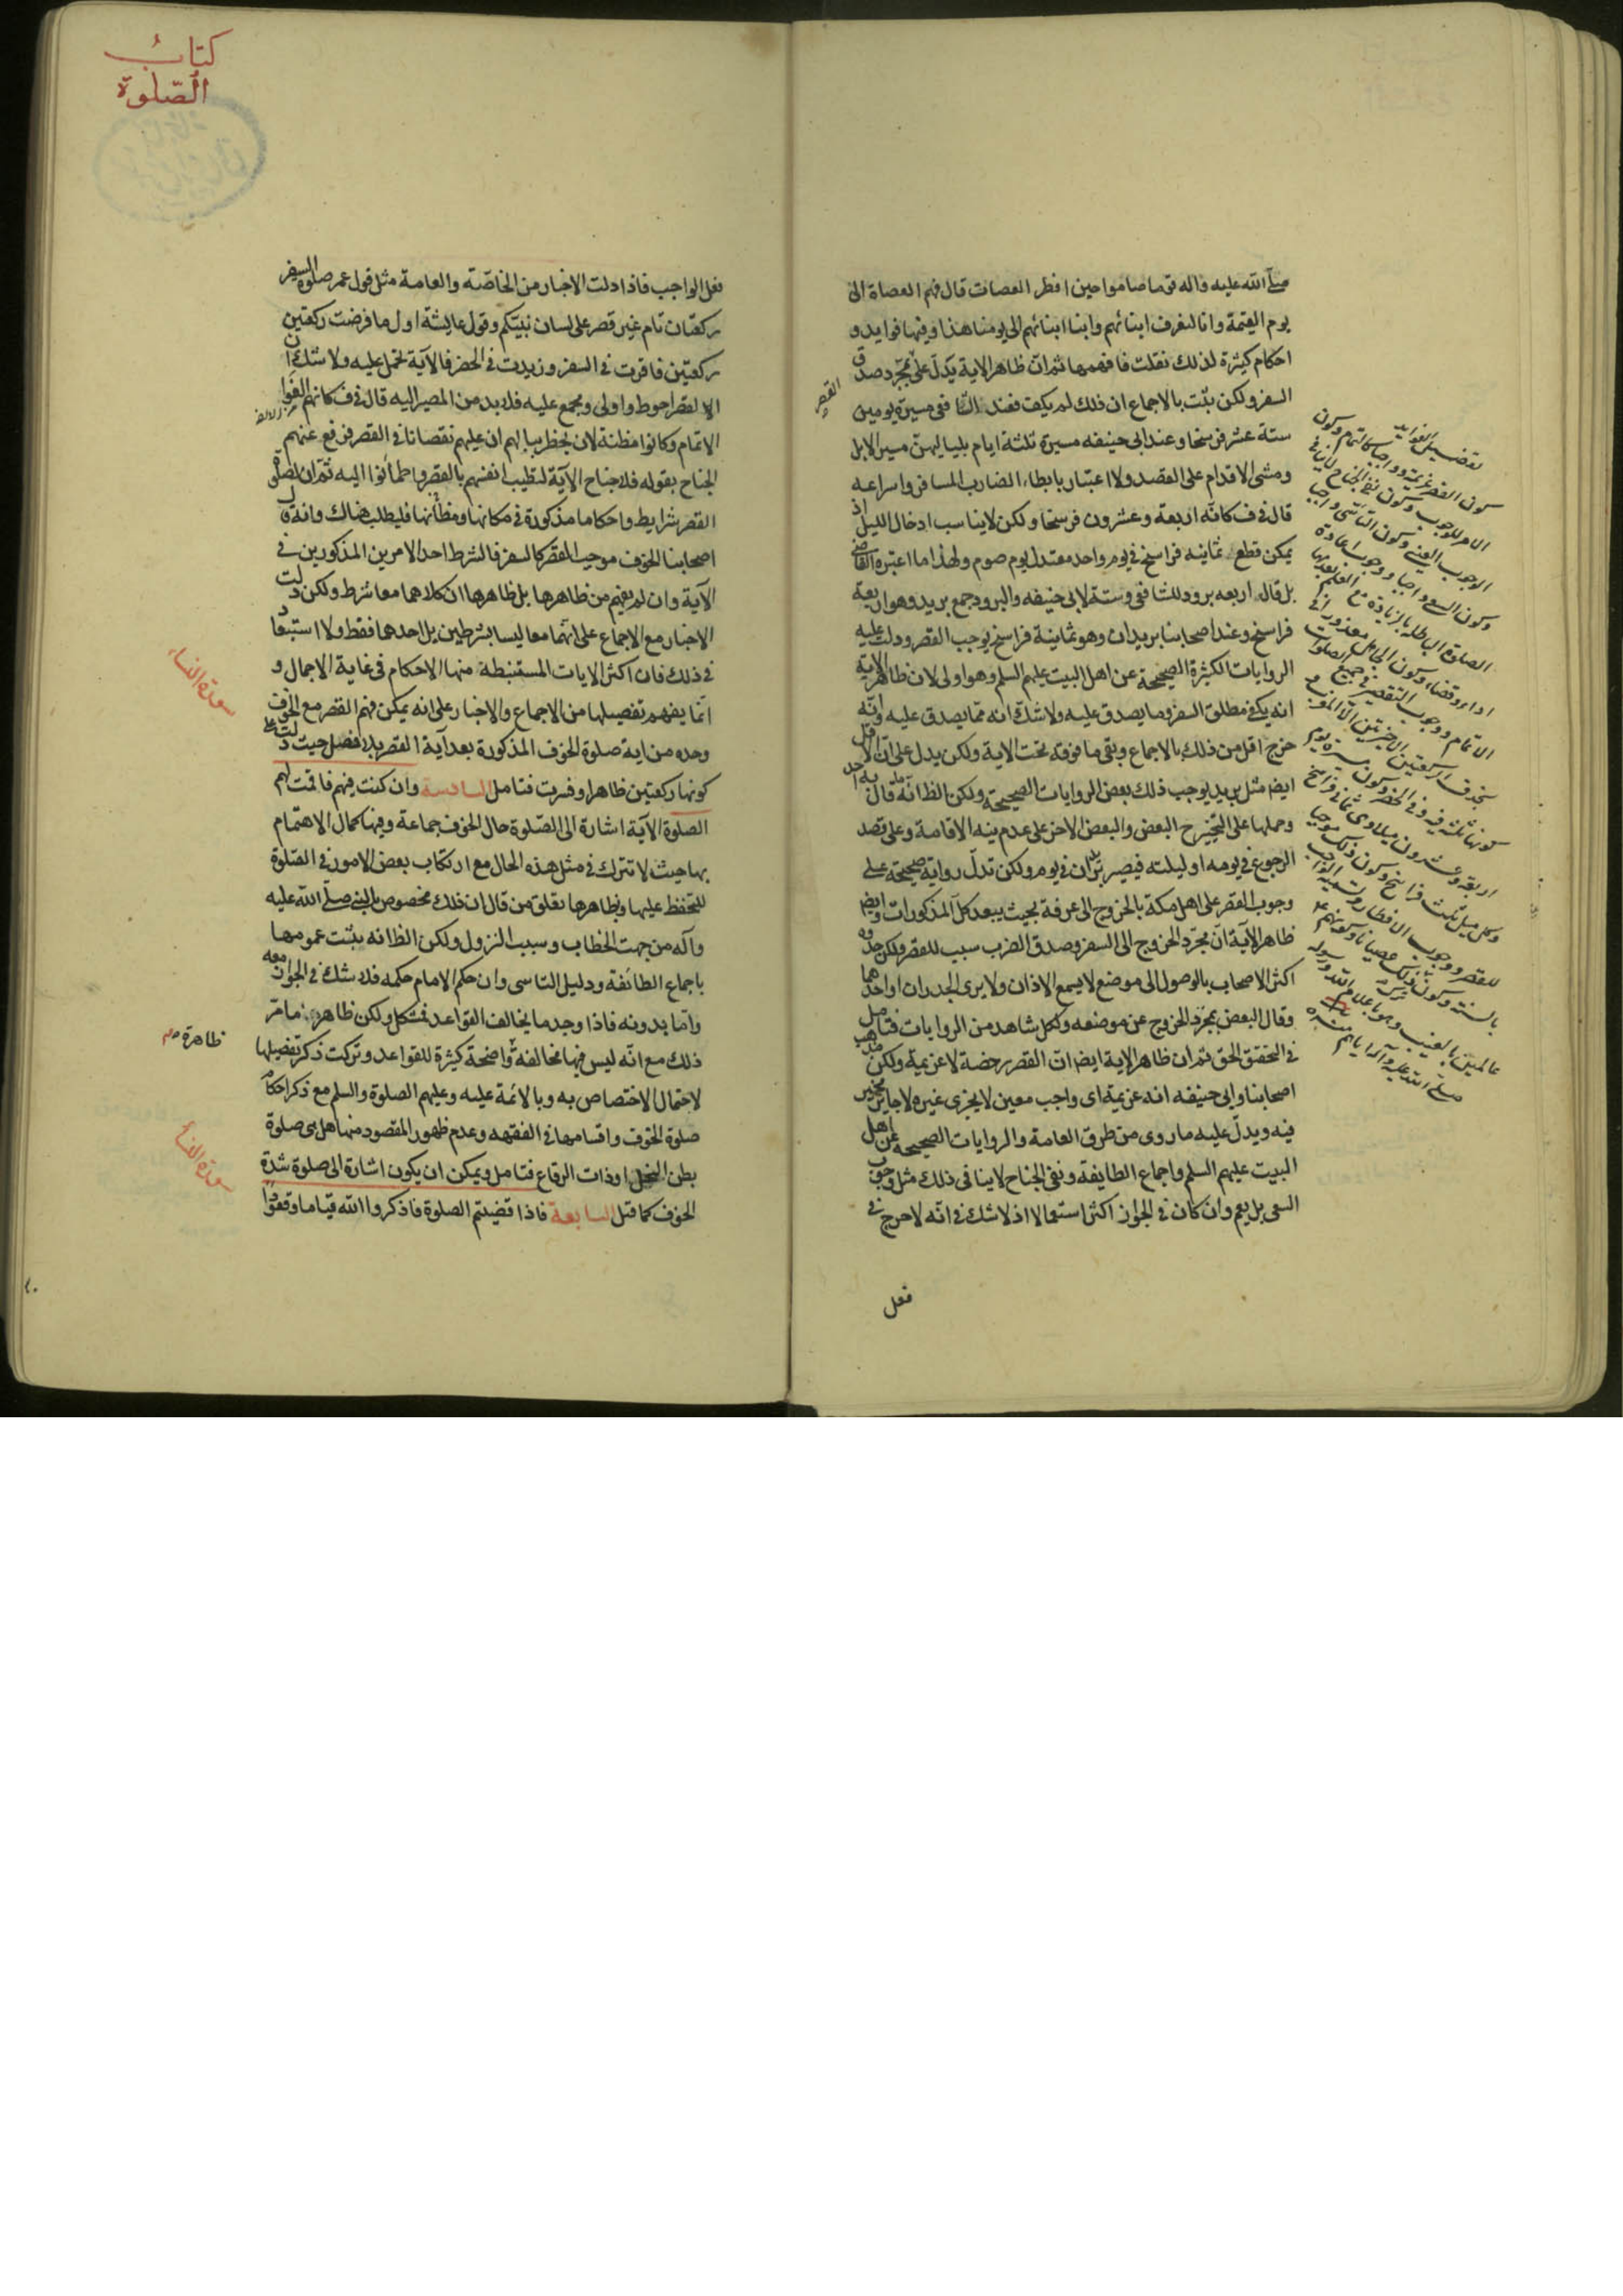 صلى الله عليه واله قوما صاموا حين افطر العصات قال فهم العصاة الى
يوم القيمة وانا لنعرف ابنائهم وابنا ابنائهم الى يومنا هذا وفيها فوايد و
احكام كثيرة لذلك نقلت فافهمها ثم ان ظاهر الاية يدل على مجرد صدق
السفر ولكن يثبت بالاجماع ان ذلك لم يكف فعند الشافعى مسيرة يومين
القصر
ستة عشر فرسخا وعند ابى حنيفه مسيرة ثلثة ايام بلياليهن مسير الابل
ومشى الاقدام على القصد ولا اعتبار بابطاء الضارب المسافر واسراعه
قال فى ف كانه اربعة وعشرون فرسخا ولكن لا يناسب ادخال الليل اذ
يمكن قطع ثمانيه فراسخ فى يوم واحد معتدل يوم صوم ولهذا ما اعتبره القاضى
بل قال اربعه برود للشافعى وستة لابى حنيفه والبرود جمع بريد وهو اربعة
فراسخ وعند اصحابنا بريدان وهو ثمانية فراسخ يوجب القصر ودلت عليه
الروايات الكثيرة الصحيحة عن اهل البيت عليهم السلم وهو اولى لان ظاهر الاية
انه يكفى مطلق السفر وما يصدق عليه ولا شك انه مما يصدق عليه وانه
خرج اقل من ذلك بالاجماع وبقى ما فوقه تحت الاية ولكن يدل على ان الاقل
ايضا مثل بريد يوجب ذلك بعض الروايات الصحيحة ولكن الظ انه ما قال به احد
وحملها على التخيير البعض والبعض الاخر على عدم نيه الاقامة وعلى قصد
الرجوع فى يومه او ليلته فيصير بريدان فى يوم ولكن تدل رواية صحيحة على
وجوب القصر على اهل مكة بالخروج الى عرفة بحيث يبعد كل المذكورات وايضا
ظاهر الآية ان مجرد الخروج الى السفر وصدق الضرب سبب للقصر ولكن حده
اكثر الاصحاب بالوصول الى موضع لا يسمع الاذان ولا يرى الجدران او احدهما
وقال البعض بمجرد الخروج عن موضعه ولكل شاهد من الروايات فتامل
فى التحقق الحق ثم ان ظاهر الاية ايضا ان القصر رخصة لا عزيمة ولكن مذهب
اصحابنا وابى حنيفه انه عزيمة اى واجب معين لا يجزى غيره لا جايز مخير
فيه ويدل عليه ما روى من طرق العامة والروايات الصحيحة عن اهل
البيت عليهم السلم واجماع الطايفة ونفى الجناح لا ينافى ذلك مثل وجوب
السعى بل يعم وان كان فى الجواز اكثر استعمالا اذ لا شك فى انه لا حرج فى
فعل
تفصيل الفوايد
كون القصر عزيمة وواجبا كالتمام وكون
الامر للوجوب وكون نفى الجناح لا ينافى
الوجوب العينى وكون التاسى واجبا
وكون السعى واجبا ووجوب اعادة
الصلوة الباطلة بالزيادة مع العلم بعدمها
اداء وقضاء وكون الجاهل معذورا فى
الاتمام ووجوب التقصير فى جميع الصلوات
بحذف الركعتين الاخيرتين الا المغرب و
كونها ثلثة فيه وفى الحضر وكون مسيرة يوم
اربعة وعشرون ميلا وى ثمانى فراسخ
وكل ميل ثلث فراسخ وكون ذلك موجبا
للقصر ووجوب الافطار
بالسنة وكون ذلك عصيانا وكونهم ع
عالمين بالغيب وهو باعلام الله ورسوله
صلى الله عليه وآله اياهم منه ره
كتاب
الصلوة
فعل الواجب فاذا دلت الاخبار من الخاصة والعامة مثل قول عمر صلوة السفر
ركعتان تام غير قصر على لسان نبيكم وقول عايشة اول ما فرضت ركعتين
ركعتين فاقرت فى السفر وزيدت فى الحضر فالآية تحمل عليه ولا شك ان
الالقصر احوط واولى ومجمع عليه فلابد من المصير اليه قال فى ف كانهم الفوا
الاتمام وكانوا مظنة لان يخطر ببالهم ان عليهم نقصانا فى القصر فرفع عنهم
الجناح بقوله فلا جناح الآية لتطيب انفسهم بالقصر واطمأنوا اليه ثم ان لصلوة
القصر شرايط واحكاما مذكورة فى مكانها ومظانها فليطلب هناك وانه قال
اصحابنا الخوف موجب للقصر كالسفر فالشرط احد الامرين المذكورين فى
الآية وان لم يفهم من ظاهرها بل ظاهرها ان كلاهما معا شرط ولكن دلت
الاخبار مع الاجماع على انهما معا ليسا بشرطين بل احدهما فقط ولا استبعاد
فى ذلك فان اكثر الايات المستنبطة منها الاحكام فى غاية الاجمال و
انما يفهم تفصيلها من الاجماع والاخبار على انه يمكن فهم القصر مع الخوف
سورة النساء
وحده من اية صلوة الخوف المذكورة بعد آية القصر بلا فصل حيث دلت على
كونها ركعتين ظاهرا وفسرت فتامل السادسة وان كنت فيهم فاقمت لهم
الصلوة الآية اشارة الى الصلوة حال الخوف جماعة وفيها كمال الاهتمام
بها حيث لا تترك فى مثل هذه الحال مع ارتكاب بعض الامور فى الصلوة
للتحفظ عليها وبظاهرها تعلق من قال ان ذلك مخصوص بالنبى صلى الله عليه
وآله من جهت الخطاب وسبب النزول ولكن الظ انه يثبت عمومها
باجماع الطائفة ودليل التاسى وان حكم الامام حكمه فلا شك فى الجواز معه
واما بدونه فاذا وجد ما يخالف القواعد فمشكل ولكن ظاهرهم ما مر
ظاهرة
ذلك مع انه ليس فيها مخالفة واضحة كثيرة للقواعد وتركت ذكر تفصيلها
لاحتمال الاختصاص به وبالائمة عليه وعليهم الصلوة والسلم مع ذكر احكام
صلوة الخوف واقسامها فى الفقهه وعدم ظهور المقصود منها هل هى صلوة
سورة النساء
بطن النخل او ذات الرقاع فتامل ويمكن ان يكون اشارة الى صلوة شدة
الخوف كما قيل السابعة فاذا قضيتم الصلوة فاذكروا الله قياما وقعودا